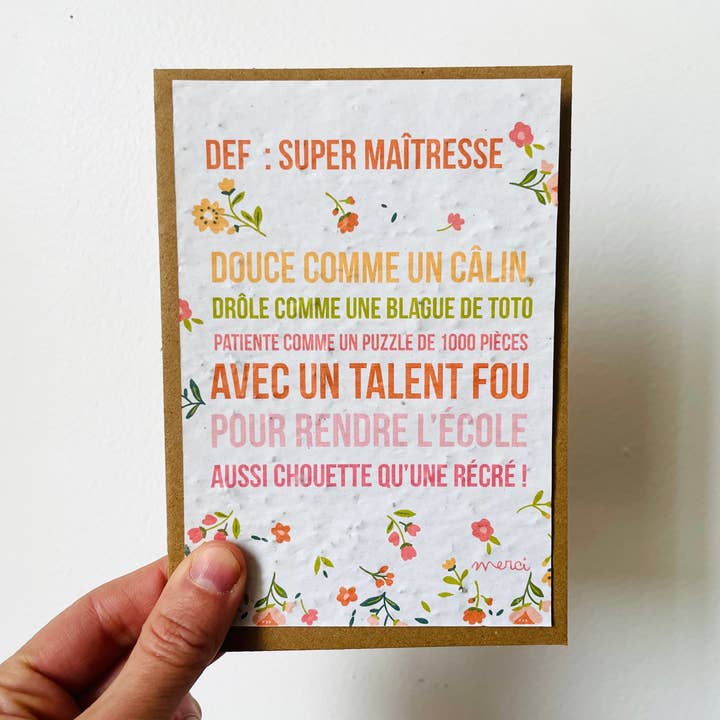 DEF : SUPER MAÎTRESSE
DOUCE COMME UN CÂLIN,
DRÔLE COMME UNE BLAGUE DE TOTO
PATIENTE COMME UN PUZZLE DE 1000 PIÈCES
AVEC UN TALENT FOU
POUR RENDRE L'ÉCOLE
AUSSI CHOUETTE QU'UNE RÉCRÉ !
merci